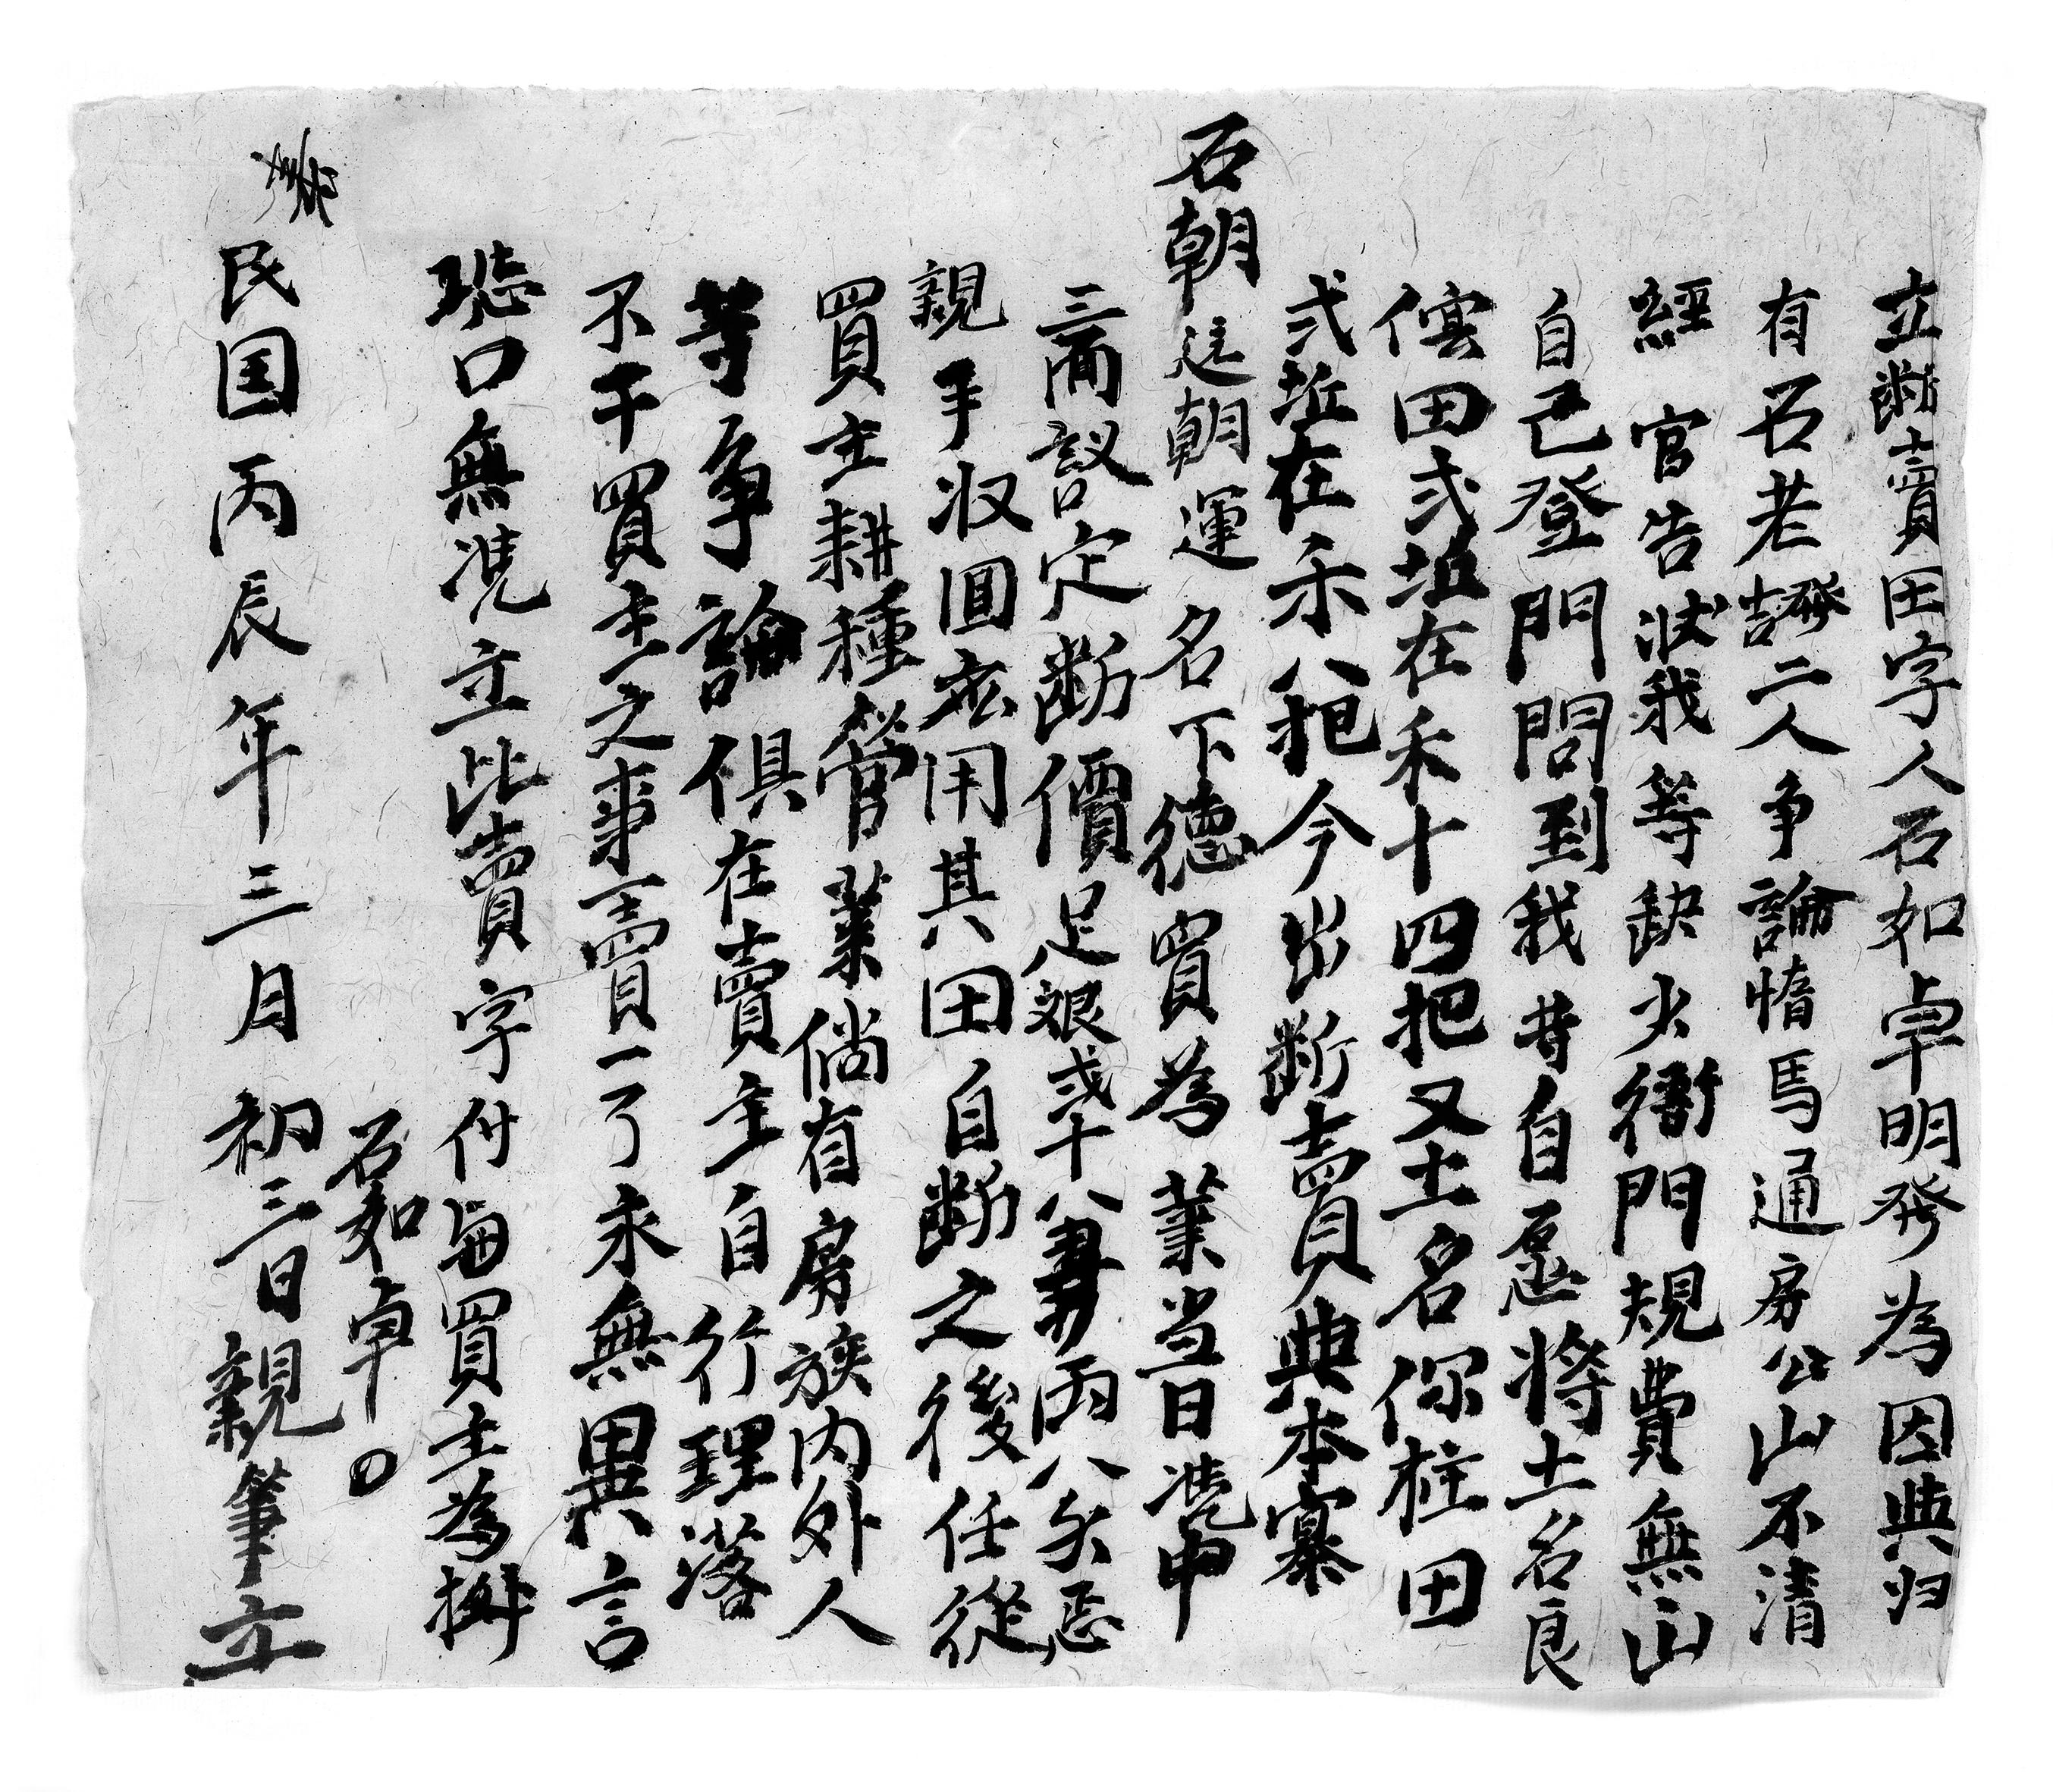 立斷賣田字人石如卓明発為因典归
有石老發二人争論惰馬通房公山不清
經官告狀我等缺少衙門規費無山
自己登門問到我昔自愿將土名良
田弍坵在禾十四把又土名你柱田
弍坵在禾八把今出斷賣典本寨
石朝廷朝運名下德買為業当日凴中
三面議定断價足銀弍十八两八矣恁
親手収回應用其田自断之後任從
買主耕種管業倘有房族内外人
等争論俱在賣主自行理落
不干買主之事一賣一了永無異言
恐口無凴立此賣字付与買主為據
石如卓
民国丙辰年三月初三日親筆立